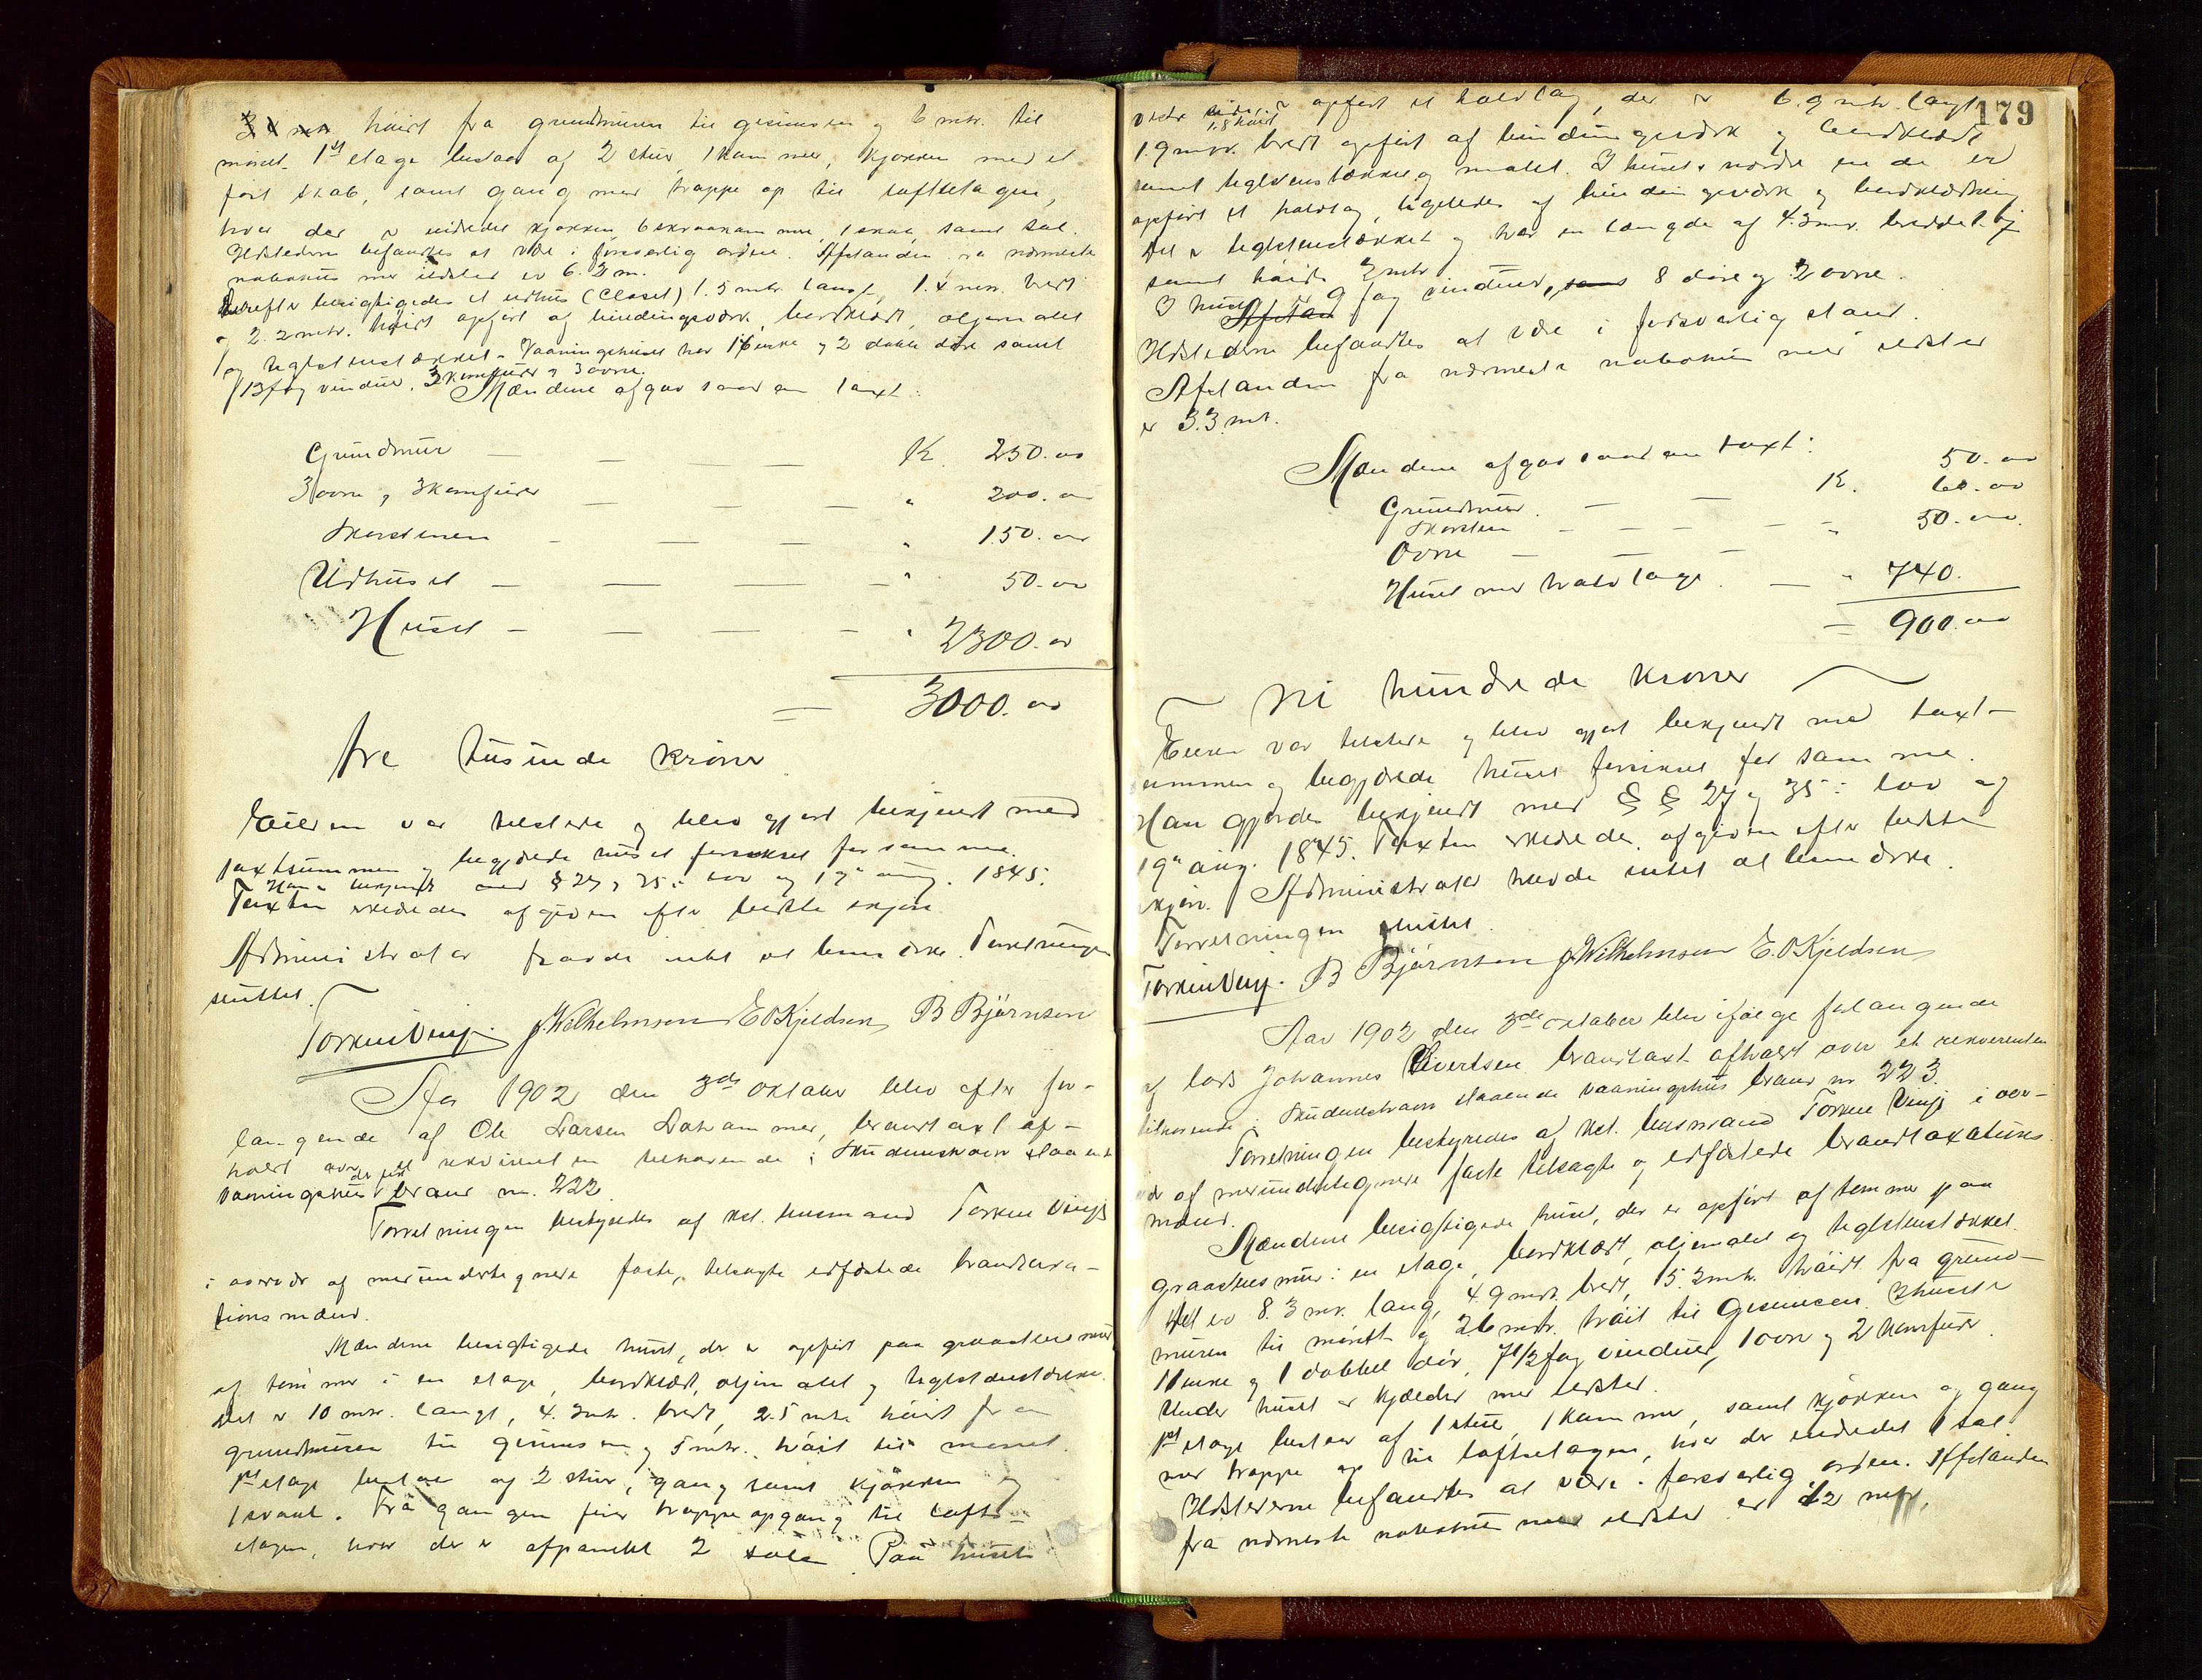 høit fra grundmuren til gesimsen og 6 mtr. til
mønet. 1st etage bestaar af 2 stuer, 1 kammer, kjøkken med et
fast skab, samt gang med trappe op til loftsetagen,
hvor der er indredet kjøkken, 6 skraakammere, 1 skab samt sal.
Ildstederne befandtes at være i forsvarlig orden. Afstanden fra nærmeste
nabohus med ildsted er 6.3 m.
Derefter besigtigedes et udhus (Closet) 1.5 mtr. langt, 1.4 mtr. bredt
og 2.2 mtr. høit opført af bindingsværk, bordklædt, oljemalet
og teglstenstækket. Vaaningshuset har 16 enkle og 2 doble døre samt
13 fag vinduer. 3 komfurer og 3 ovne.
Mændene afgav saadan taxt:
Grundmur — — — — K. 250.00
3 ovne og 3 komfurer — — — " 200.00
Skorstenen — — — " 150.00
Udhuset — — — — " 50.00
Huset — — — — " 2300.00
= 3000.00
tre tusinde kroner
Eieren var tilstede og blev gjort bekjendt med
taxtsummen og begjærede huset forsikret for samme.
Han er bekjendt med § 27 og 35 i lov af 19de aug. 1845.
Taxten erklæredes afgiven efter bedste skjøn.
Administrator havde intet at bemærke. Forretningen
sluttet.
Torkel Vinje. J. Wilhelmsen E. O Kjeldsen B Bjørnsen
Aar 1902 den 3de oktober blev efter for-
langende af Ole Larsen, brandtaxt af-
holdt over det rekvirenten tilhørende i Skudeneshavn staaende
vaaningshus brand nr. 222.
Forretningen bestyredes af kst. lensmand Torkel Vinje
i overvær af medundertegnede faste, tilsagte edfæstede brandtaxa-
tionsmænd.
Mændene besigtigede huset, der er opført paa graastensmur
af tømmer i en etage, bordklædt, oljemalet og teglstenstækket.
Det er 10 mtr. langt, 4.3 mtr. bredt, 2.5 mtr. høit fra
grundmuren til gesimsen og 5 mtr. høit til mønet.
1st etage bestaar af 2 stuer, gang samt kjøkken og
1 svale. Fra gangen fører trappeopgang til lofts-
etagen, hvor der er afpanelt 2 sale. Paa husets
179
vestre side er opført et halvtag, der er 6.9 mtr. langt
1.8 høit
1.9 mtr. bredt opført af bindingsværk og bordklædt
samt teglstenstækket og malet. I husets nordre ende er
opført et halvtag, ligeledes af bindingsværk og bordklædning.
Det er teglstenstækket og har en længde af 4.3 mtr. bredde
samt høide 2 mtr.
I huset er 9 fag vinduer, 8 døre og 2 ovne.
Ildstederne befandtes at være i forsvarlig stand.
Afstanden fra nærmeste nabohus med ildsted
er 3.3 mt.
Mændene afgav saadan taxt:
Grundmur — — K. 50.00
Skorsten — — — — " 60.00
Ovne — — — 50.00
Huset med halvtage — " 740.
= 900.00
Ni hundrede kroner
Eieren var tilstede og blev gjort bekjendt med taxt-
summen og begjærede huset forsikret for samme.
Han gjordes bekjendt med §§ 27 og 35 i lov af
19de aug. 1845. Taxten erklæredes afgiven efter bedste
skjøn. Administrator havde intet at bemærke.
Forretningen sluttet.
Torkel Vinje. B Bjørnsen J. Wilhelmsen E. O Kjeldsen
Aar 1902 den 3de oktober blev ifølge forlangende
af Lars Johannes Sivertsen brandtaxt afholdt over et rekvirenten
tilhørende i Skudeneshavn staaende vaaningshus brand nr 223.
Forretningen bestyredes af kst. lensmand Torkel Vinje i over-
vær af medundertegnede faste tilsagte og edfæstede brandtaxations-
mænd.
Mændene besigtigede huset, der er opført af tømmer paa
graastensmur i en etage, bordklædt, oljemalet og teglstenstækket.
Det er 8.3 mtr. lang, 4.9 mtr. bredt, 5.3 mtr. høidt fra grund-
muren til mønet og 2.6 mtr. høit til gesimsen. I huset er
11 enkle og 1 dobbel dør, 7 1/2 fag vinduer, 1 ovn og 2 komfurer.
Under huset er kjælder med ildsted.
1st etage bestaar af 1 stue, 1 kammer, samt kjøkken og gang
med trappe op til loftsetagen, hvor der er indredet 1 sal.
Ildstederne befandtes at være i forsvarlig orden. Afstanden
fra nærmeste nabohus med ildsted er 12 mtr.